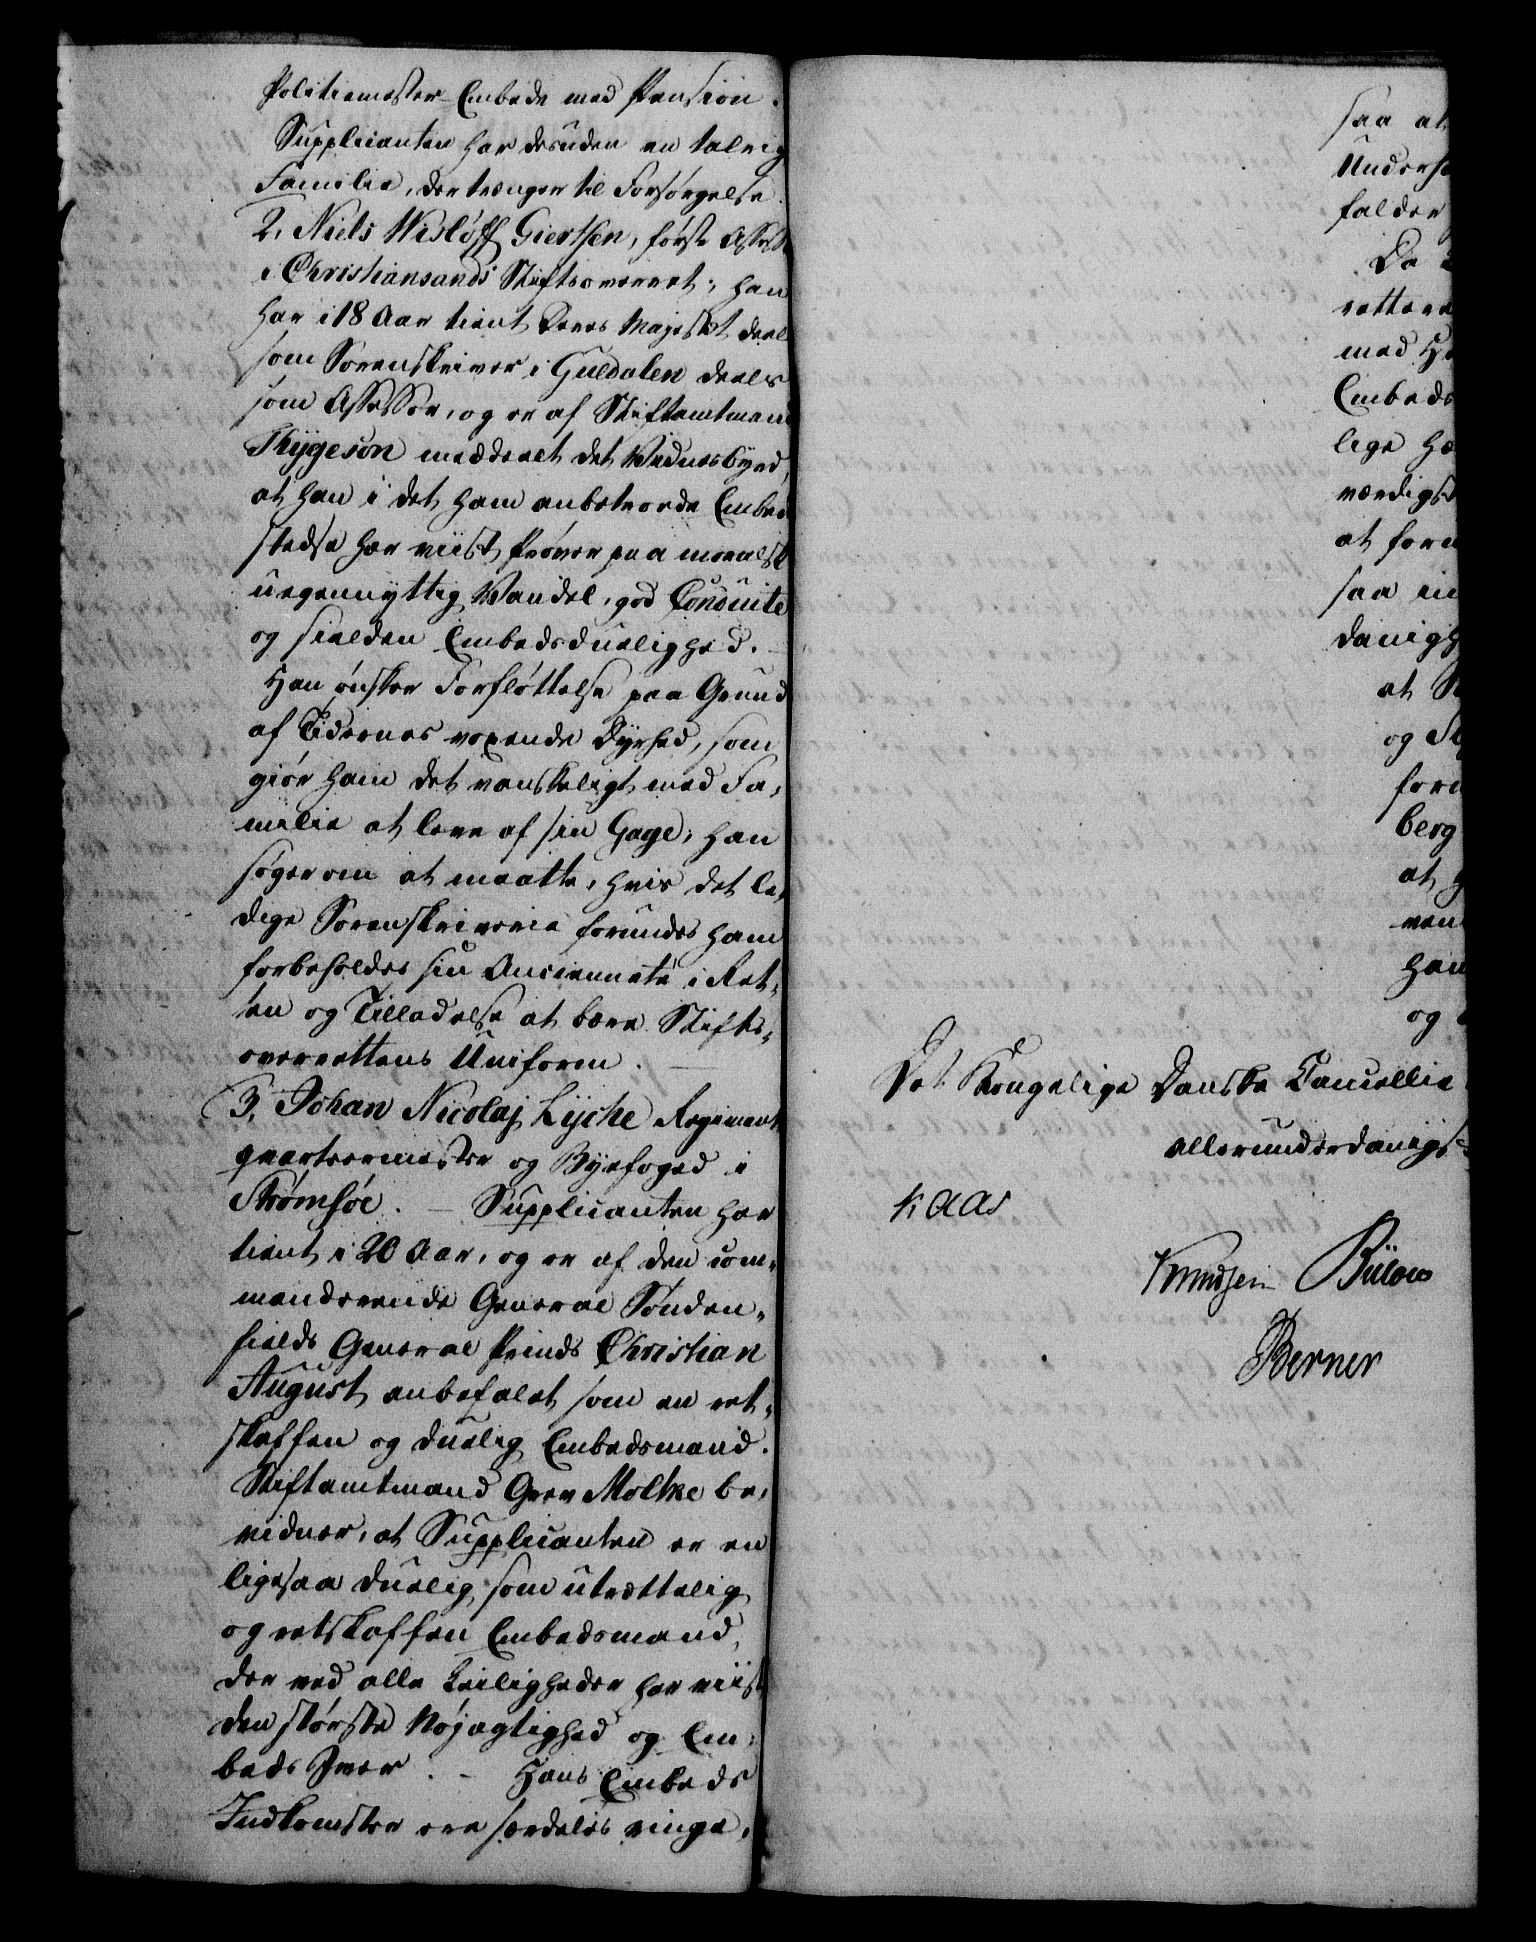 Politiemester-Embede med Pension.
Supplicanten har desuden en talrig
Familie, der trænger til Forsørgelse.
2, Niels Wisløff Giertsen, første Assess
i Christiansands Stiftsoverret; han
har i 18 Aar tient Deres Majestet deel
som Sorenskriver i Guldalen deels
som Assessor, og er af Stiftamtmand
Thygeson meddeelt det Vidnesbyrd,
at han i det ham anbetroede Embed
stedse har viist Prøver paa moralsk
uegennyttig Vandel, god Conduite
og sielden Embedsduelighed. -
Han ønsker Forfløttelse paa Grund
af Tidernes voxende Dyrhed, som
giør ham det vanskeligt med Fa-
milie at leve af sin Gage; han
søger om at maatte, hvis det le-
dige Sorenskriverie forundes ham
forbeholdes sin Anciennete i Ret-
ten og Tilladelse at bære Stifts-
overrettens Uniform. -
3, Johan Nicolaj Lyche Regiment
qvarteermester og Byefoged i
Strømsøe. - Supplicanten har
tient i 20 Aar, og er af den com-
manderende General Sønden-
fields General Prinds Christian
August anbefalet som en ret-
skaffen og duelig Embedsmand.
Stiftamtmand Grev Moltke be-
vidner, at Supplicanten er en
ligesaa duelig som utrættelig
og retskaffen Embedsmand,
der ved alle Leiligheder har viist
den største Nøjagtighed og Em-
beds Iver. - Hans Embeds
Indkomster ere særdeles ringe,
saa at
Underho
falder
Da
rettere
med H
Embeds
lige
værdigst
at for
saa
danigh
at
og
for
berg
at
ven
han
og
Det Kongelige Danske Cancellie
allerunderdanigst
Kaas
Knudsen Bülow
Berner